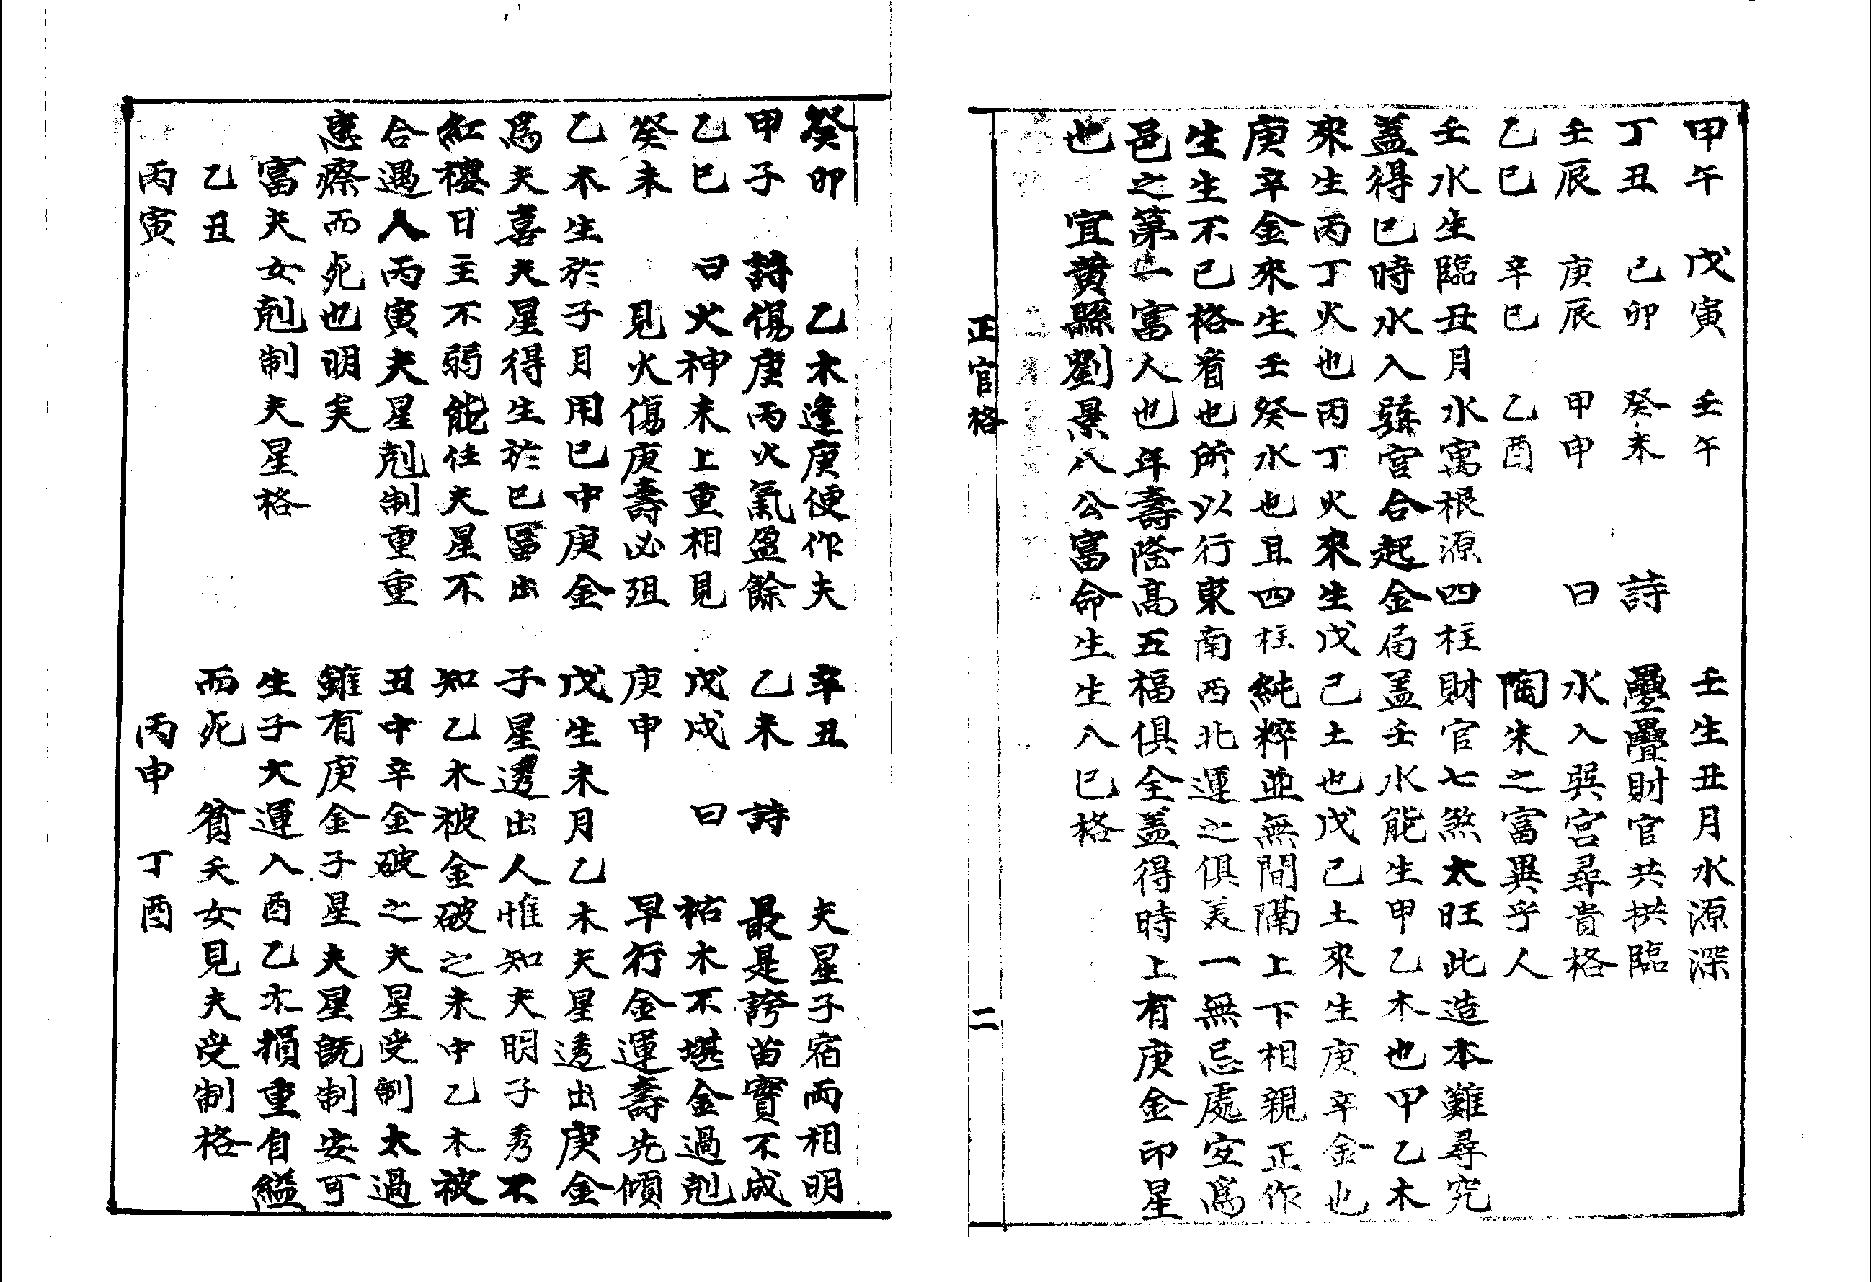 甲午 戊寅 壬午 壬生丑月水源深
丁丑 己卯 癸未 詩 疊疊財官共拱臨
壬辰 庚辰 甲申 曰 水入巽宮尋貴格
乙巳 辛巳 乙酉 陶朱之富異乎人
壬水生臨丑月水寓根源四柱財官七煞太旺此造本難尋究
蓋得巳時水入巽宮合起金局蓋壬水能生甲乙木也甲乙木
來生丙丁火也丙丁火來生戊己土也戊己土來生庚辛金也
庚辛金來生壬癸水也且四柱純粹並無間隔上下相親正作
生生不已格看也所以行東南西北運之俱美一無忌處安爲
邑之第一富人也年壽隆高五福俱全蓋得時上有庚金印星
也 宜黃縣劉景八公富命生生入巳格
正官格 二
癸卯 乙木逢庚便作夫
甲子 詩 傷庚丙火氣盈餘
乙巳 曰 火神未上重相見
癸未 見火傷庚壽必殂
乙木生於子月用巳中庚金
爲夫喜夫星得生於巳冨出
紅樓日主不弱能任夫星不
合遇人丙寅夫星剋制重重
患瘵而死也明矣
富夫女剋制夫星格
乙丑
丙寅
辛丑 夫星子宿两相明
乙未 詩 最是誇苗實不成
戊戌 曰 祐木不堪金過剋
庚申 早行金運壽先傾
戊生未月乙木夫星透出庚金
子星透出人惟知夫明子秀不
知乙木被金破之未中乙木被
丑中辛金破之夫星受制太過
雖有庚金子星夫星既制安可
生子大運入酉乙木損重自縊
而死 貧夭女見夫受制格
丙申 丁酉